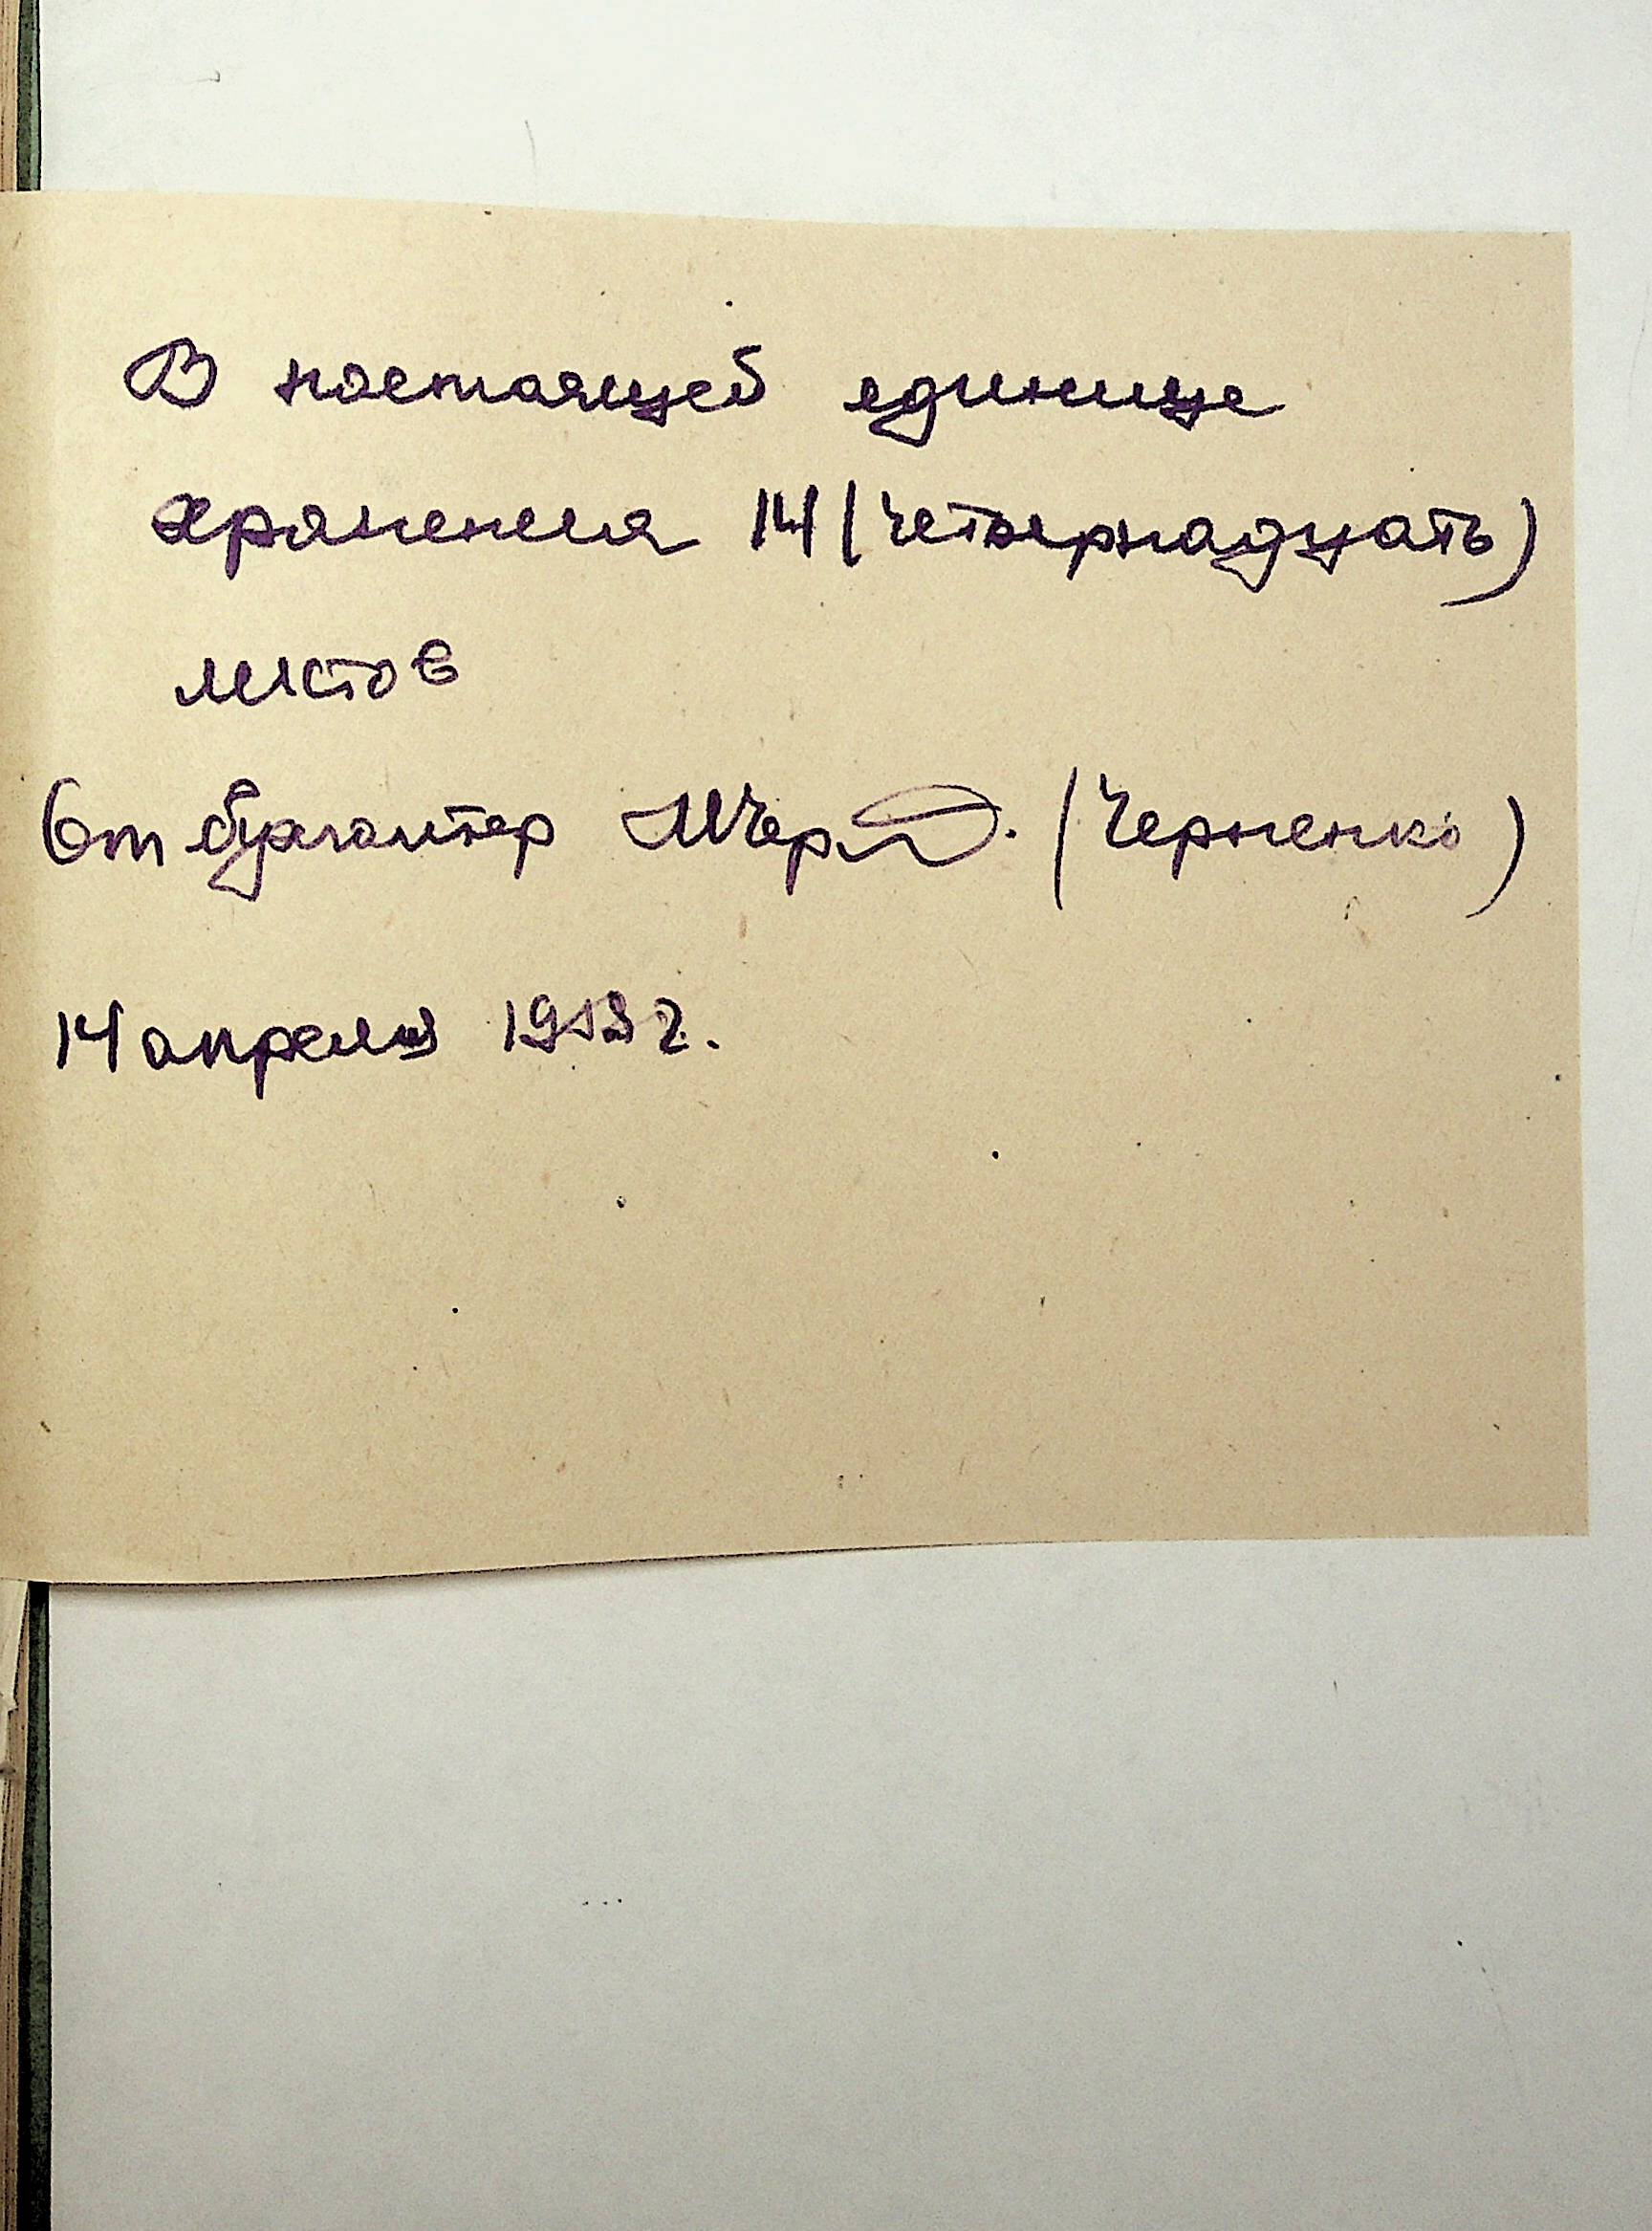 В настоящей единице
хранения 14 (четырнадцать)
листов
Ст бухгалтер МЧер (Черненко)
14 апреля г.